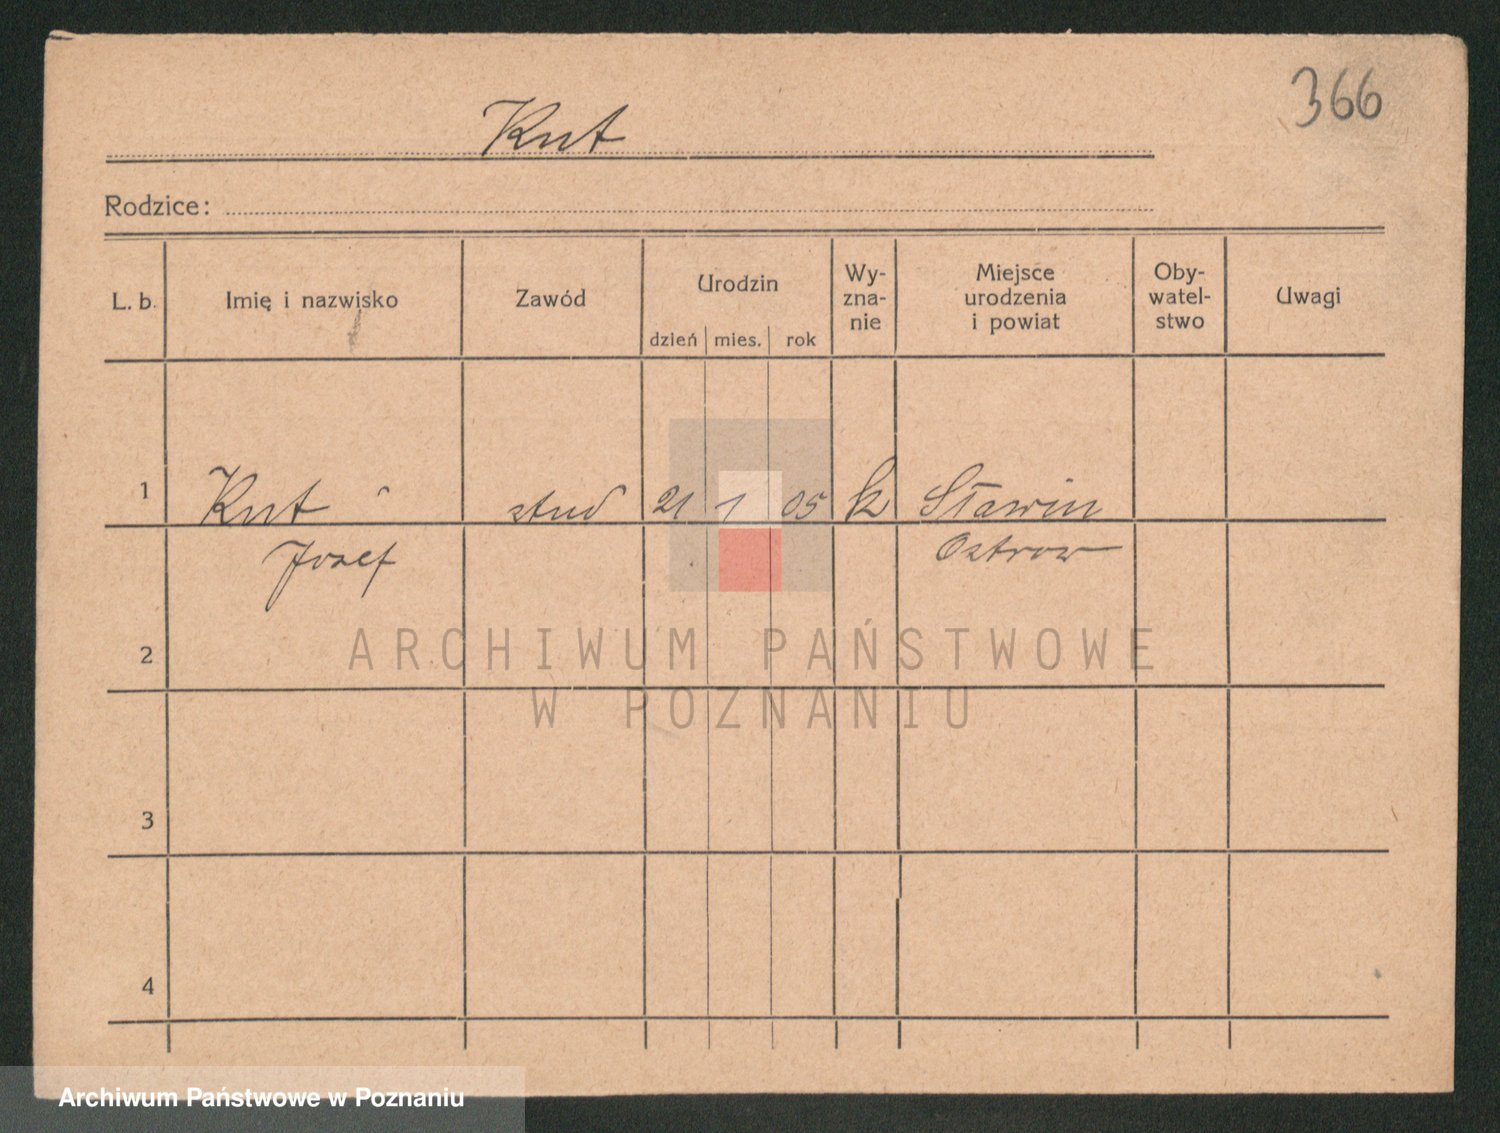 366
Knt
Rodzice:
L. b. Imię i nazwisko Zawód Urodzin dzień mies. rok Wy-zna-nie Miejsce urodzenia i powiat Oby-watel-stwo Uwagi
1 Knt stud 21 1 05 k Sławin
Józef Ostrow
2
ARCHIWUM PAŃSTWOWE
W POZNANIU
3
4
Archiwum Państwowe w Poznaniu